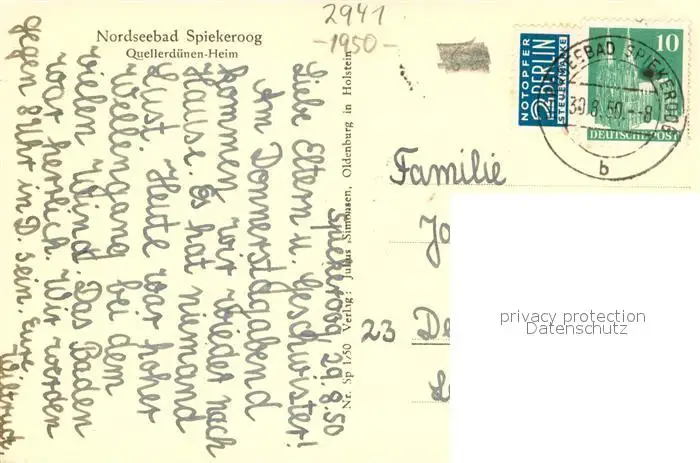 2941
-1950-
Nordseebad Spiekeroog
Quellerdünen-Heim
Spiekeroog, 29.8.50
Liebe Eltern u. Geschwister!
Am Donnerstagabend
kommen wir wieder nach
Hause. Es hat niemand
Lust. Heute war hoher
Wellengang bei dem
vielen Wind. Das Baden
war herrlich. Wir werden
gegen 8 Uhr in D. sein. Eure
Nr. Sp 1/50 Verlag: Julius Simonsen, Oldenburg in Holstein
NOTOPFER
2 BERLIN
STEUERMARKE
10
DEUTSCHE POST
SEEBAD SPIEKEROOG
30.8.50.-8
b
Familie
Jo
23 De
privacy protection
Datenschutz